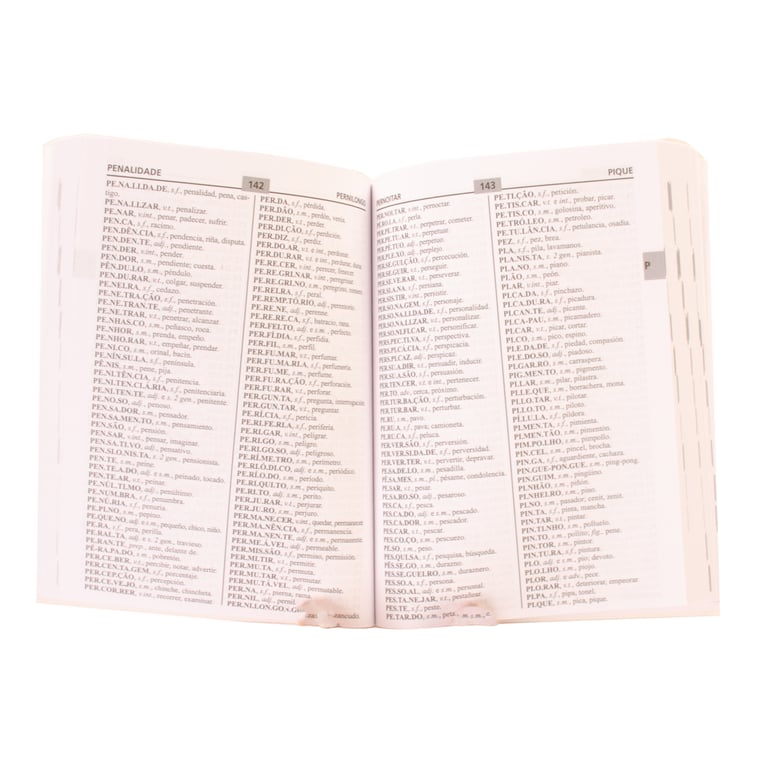 PENALIDADE
142
PERNILONGO
PE.NA.LI.DA.DE, s.f., penalidad, pena, cas-
tigo.
PE.NA.LI.ZAR, v.t., penalizar.
PE.NAR, v.int., penar, padecer, sufrir.
PEN.CA, s.f., racimo.
PEN.DÊN.CIA, s.f., pendencia, riña, disputa.
PEN.DEN.TE, adj., pendiente.
PEN.DER, v.int., pender.
PEN.DOR, s.m., pendiente; cuesta.
PÊN.DU.LO, s.m., péndulo.
PEN.DU.RAR, v.t., colgar, suspender.
PE.NEI.RA, s.f., cedazo.
PE.NE.TRA.ÇÃO, s.f., penetración.
PE.NE.TRAN.TE, adj., penetrante.
PE.NE.TRAR, v.t., penetrar, alcanzar.
PE.NHAS.CO, s.m., peñasco, roca.
PE.NHOR, s.m., prenda, empeño.
PE.NHO.RAR, v.t., empeñar, prendar.
PE.NI.CO, s.m., orinal, bacín.
PE.NÍN.SU.LA, s.f., península.
PÊ.NIS, s.m., pene, pija.
PE.NI.TÊN.CIA, s.f., penitencia.
PE.NI.TEN.CI.Á.RIA, s.f., penitenciaría.
PE.NI.TEN.TE, adj. e s. 2 gen., penitente.
PE.NO.SO, adj., penoso.
PEN.SA.DOR, s.m., pensador.
PEN.SA.MEN.TO, s.m., pensamiento.
PEN.SÃO, s.f., pensión.
PEN.SAR, v.int., pensar, imaginar.
PEN.SA.TI.VO, adj., pensativo.
PEN.SI.O.NIS.TA, s. 2 gen., pensionista.
PEN.TE, s.m., peine.
PEN.TE.A.DO, adj. e s.m., peinado, tocado.
PEN.TE.AR, v.t., peinar.
PE.NÚL.TI.MO, adj., penúltimo.
PE.NUM.BRA, s.f., penumbra.
PE.NÚ.RIA, s.f., penuria.
PE.PI.NO, s.m., pepino.
PE.QUE.NO, adj. e s.m., pequeño, chico, niño.
PE.RA, s.f., pera, perilla.
PE.RAL.TA, adj. e s. 2 gen., travieso.
PE.RAN.TE, prep., ante, delante de.
PÉ-RA.PA.DO, s.m., pobretón.
PER.CE.BER, v.t., percibir, notar, advertir.
PER.CEN.TA.GEM, s.f., porcentaje.
PER.CEP.ÇÃO, s.f., percepción.
PER.CE.VE.JO, s.m., chinche, chincheta.
PER.COR.RER, v.int., recorrer, examinar.
PER.DA, s.f., pérdida.
PER.DÃO, s.m., perdón, venia.
PER.DER, v.t., perder.
PER.DI.ÇÃO, s.f., perdición.
PER.DIZ, s.f., perdiz.
PER.DO.AR, v.t. e int., perdonar.
PER.DU.RAR, v.t. e int., perdurar, durar.
PE.RE.CER, v.int., perecer, fenecer.
PE.RE.GRI.NAR, v.int., peregrinar.
PE.RE.GRI.NO, s.m., peregrino, romero.
PE.REI.RA, s.f., peral.
PE.REMP.TÓ.RIO, adj., perentorio.
PE.RE.NE, adj., perenne.
PE.RE.RE.CA, s.f., batracio, rana.
PER.FEI.TO, adj. e s.m., perfecto.
PER.FÍ.DIA, s.f., perfidia.
PER.FIL, s.m., perfil.
PER.FU.MAR, v.t., perfumar.
PER.FU.MA.RI.A, s.f., perfumería.
PER.FU.ME, s.m., perfume.
PER.FU.RA.ÇÃO, s.f., perforación.
PER.FU.RAR, v.t., perforar.
PER.GUN.TA, s.f., pregunta, interrogación.
PER.GUN.TAR, v.t., preguntar.
PE.RÍ.CIA, s.f., pericia.
PE.RI.FE.RI.A, s.f., periferia.
PE.RI.GAR, v.int., peligrar.
PE.RI.GO, s.m., peligro.
PE.RI.GO.SO, adj., peligroso.
PE.RÍ.ME.TRO, s.m., perímetro.
PE.RI.ÓDI.CO, adj. e s.m., periódico.
PE.RÍ.O.DO, s.m., período.
PE.RI.QUI.TO, s.m., periquito.
PE.RI.TO, adj. e s.m., perito.
PER.JU.RAR, v.t., perjurar.
PER.JU.RO, s.m., perjuro.
PER.MA.NE.CER, v.int., quedar, permanecer.
PER.MA.NÊN.CIA, s.f., permanencia.
PER.MA.NEN.TE, adj. e s.m., permanente.
PER.ME.Á.VEL, adj., permeable.
PER.MIS.SÃO, s.f., permiso, permisión.
PER.MI.TIR, v.t., permitir.
PER.MU.TA, s.f., permuta.
PER.MU.TAR, v.t., permutar.
PER.MU.TÁ.VEL, adj., permutable.
PER.NA, s.f., pierna, rama.
PER.NIL, adj., pernil.
PER.NI.LON.GO, s.
PERNOITAR
143
PIQUE
P
PER.NOI.TAR, v.int., pernoctar.
PÉ.RO.LA, s.f., perla.
PER.PE.TRAR, v.t., perpetrar, cometer.
PER.PE.TU.AR, v.t., perpetuar.
PER.PÉ.TUO, adj., perpetuo.
PER.PLE.XO, adj., perplejo.
PER.SE.GUI.ÇÃO, s.f., persecución.
PER.SE.GUIR, v.t., perseguir.
PER.SE.VE.RAR, v.t., perseverar.
PER.SI.A.NA, s.f., persiana.
PER.SIS.TIR, v.int., persistir.
PER.SO.NA.GEM, s.f., personaje.
PER.SO.NA.LI.DA.DE, s.f., personalidad.
PER.SO.NA.LI.ZAR, v.t., personalizar.
PER.SO.NI.FI.CAR, v.t., personificar.
PERS.PEC.TI.VA, s.f., perspectiva.
PERS.PI.CÁ.CIA, s.f., perspicacia.
PERS.PI.CAZ, adj., perspicaz.
PER.SU.A.DIR, v.t., persuadir, inducir.
PER.SU.A.SÃO, s.f., persuasión.
PER.TEN.CER, v.t. e int., pertenecer.
PER.TO, adv., cerca, próximo.
PER.TUR.BA.ÇÃO, s.f., perturbación.
PER.TUR.BAR, v.t., perturbar.
PE.RU, s.m., pavo.
PE.RU.A, s.m., pava; camioneta.
PE.RU.CA, s.f., peluca.
PER.VER.SÃO, s.f., perversión.
PER.VER.SI.DA.DE, s.f., perversidad.
PER.VER.TER, v.t., pervertir, depravar.
PE.SA.DE.LO, s.m., pesadilla.
PÊSA.MES, s.m., pl., pésame, condolencia.
PE.SAR, v.t., pesar.
PE.SA.RO.SO, adj., pesaroso.
PES.CA, s.f., pesca.
PES.CA.DO, adj. e s.m., pescado.
PES.CA.DOR, s.m., pescador.
PES.CAR, v.t., pescar.
PES.CO.ÇO, s.m., pescuezo.
PE.SO, s.m., peso.
PES.QUI.SA, s.f., pesquisa, búsqueda.
PÊS.SE.GO, s.m., durazno.
PES.SE.GUEI.RO, s.m., duraznero.
PES.SO.A, s.f., persona.
PES.SO.AL, adj. e s.m., personal.
PES.TA.NE.JAR, v.t., pestañear.
PES.TE, s.f., peste.
PE.TAR.DO, s.m.,
PE.TI.ÇÃO, s.f., petición.
PE.TIS.CAR, v.t. e int., probar, picar.
PE.TIS.CO, s.m., golosina, aperitivo.
PE.TRÓ.LEO, s.m., petróleo.
PE.TU.LÂN.CIA, s.f., petulancia, osadía.
PEZ, s.f., pez, brea.
PI.A, s.f., pila, lavamanos.
PI.A.NIS.TA, s. 2 gen., pianista.
PI.A.NO, s.m., piano.
PI.ÃO, s.m., peón.
PI.AR, v.int., piar.
PI.CA.DA, s.f., pinchazo.
PI.CA.DU.RA, s.f., picadura.
PI.CAN.TE, adj., picante.
PI.CA-PAU, s.m., picamadero.
PI.CAR, v.t., picar, cortar.
PI.CO, s.m., pico, espino.
PI.E.DA.DE, s.f., piedad, compasión.
PI.E.DO.SO, adj., piadoso.
PI.GAR.RO, s.m., carraspera.
PIG.MEN.TO, s.m., pigmento.
PI.LAR, s.m., pilar, pilastra.
PI.LE.QUE, s.m., borrachera, mona.
PI.LO.TAR, v.t., pilotar.
PI.LO.TO, s.m., piloto.
PÍ.LU.LA, s.f., píldora.
PI.MEN.TA, s.f., pimienta.
PI.MEN.TÃO, s.m., pimentón.
PIM.PO.LHO, s.m., pimpollo.
PIN.CEL, s.m., pincel, brocha.
PIN.GA, s.f., aguardiente, cachaza.
PIN.GUE-PON.GUE, s.m., ping-pong.
PIN.GUIM, s.m., pingüino.
PI.NHÃO, s.m., piñón.
PI.NHEI.RO, s.m., pino.
PI.NO, s.m., pasador; cenit, zenit.
PIN.TA, s.f., pinta, mancha.
PIN.TAR, v.t., pintar.
PIN.TI.NHO, s.m., polluelo.
PIN.TO, s.m., pollito; fig., pene.
PIN.TOR, s.m., pintor.
PIN.TU.RA, s.f., pintura.
PI.O, adj. e s.m., pío, devoto.
PI.O.LHO, s.m., piojo.
PI.OR, adj. e adv., peor.
PI.O.RAR, v.t., deteriorar, empeorar
PI.PA, s.f., pipa, tonel.
PI.QUE, s.m., pica, pique.